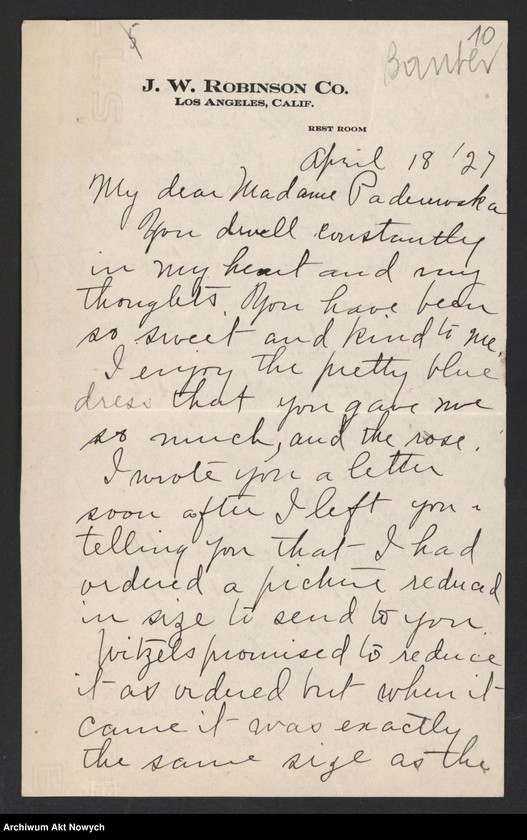 5
10
J. W. Robinson Co.
Los Angeles, Calif.
REST ROOM
April 18 '27
My dear Madame Paderewska
You dwell constantly
in my heart and my
thoughts. You have been
so sweet and kind to me.
I enjoy the pretty blue
dress that you gave me
so much, and the rose.
I wrote you a letter
soon after I left you -
telling you that I had
ordered a picture reduced
in size to send to you.
Witzels promised to reduce
it as ordered but when it
came it was exactly
the same size as the
Archiwum Akt Nowych